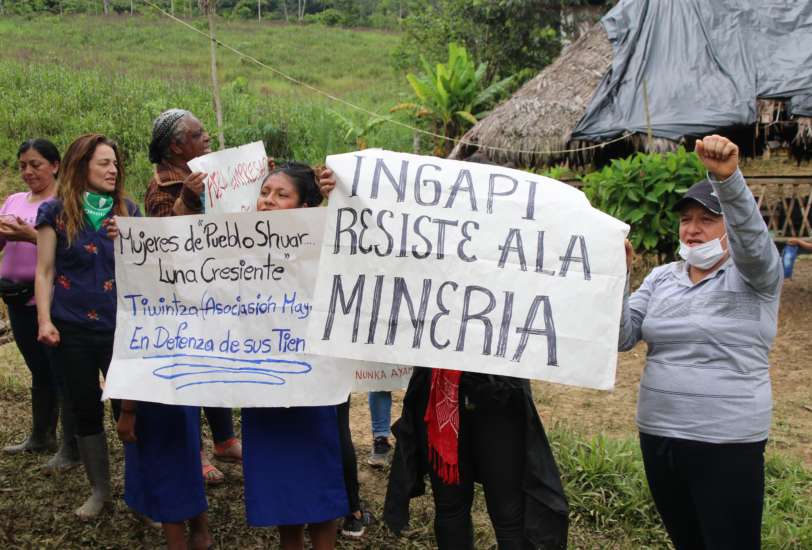 Mujeres de "Pueblo Shuar...
Luna Cresiente"
Tiwintza (Asociasión May
En Defenza de sus Tien
INGAPI
RESISTE A LA
MINERIA
NUNKA AYA